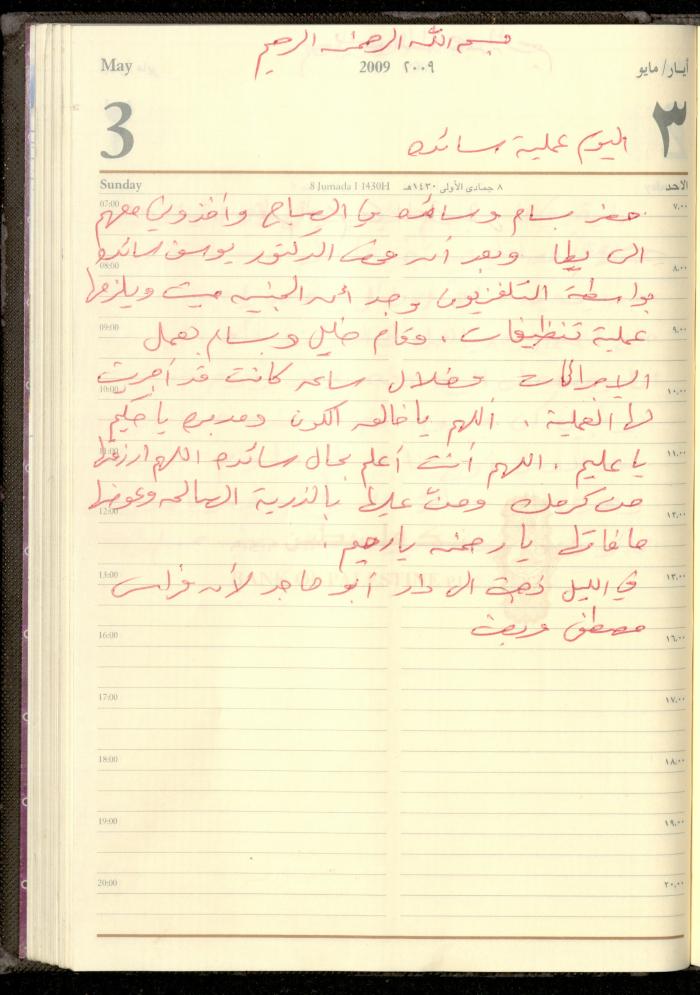 بسم الله الرحمن الرحيم
May 2009 ٢٠٠٩ أيار/ مايو
3 ٣
اليوم عملية سائده
Sunday 8 Jumada I 1430H ٨ جمادى الأولى ١٤٣٠هـ الاحد
07:00 ٧,٠٠
حضر بسام وسائده في الصباح وأخذوني معهم
الى يطا وبعد أن فحص الدكتور يوسف سائده
08:00 ٨,٠٠
بواسطة التلفزيون وجد ان الجنين ميت ويلزمها
09:00 ٩,٠٠
عملية تنظيفات . وقام خليل وبسام بعمل
الاجراءات وخلال ساعه كانت قد أجريت
10:00 ١٠,٠٠
لها العملية . اللهم يا خالق الكون ومدبره يا حكيم
يا عليم . اللهم أنت أعلم بحال سائده اللهم ارزقها
11:00 ١١,٠٠
من كرمك ومنّ عليها بالذرية الصالحه وعوضها
12:00 ١٢,٠٠
ما فاتها يا رحمن يا رحيم .
13:00 ١٣,٠٠
في الليل ذهبت الى دار أبو ماجد لأن فراس
مصطفى مريض
16:00 ١٦,٠٠
17:00 ١٧,٠٠
18:00 ١٨,٠٠
19:00 ١٩,٠٠
20:00 ٢٠,٠٠